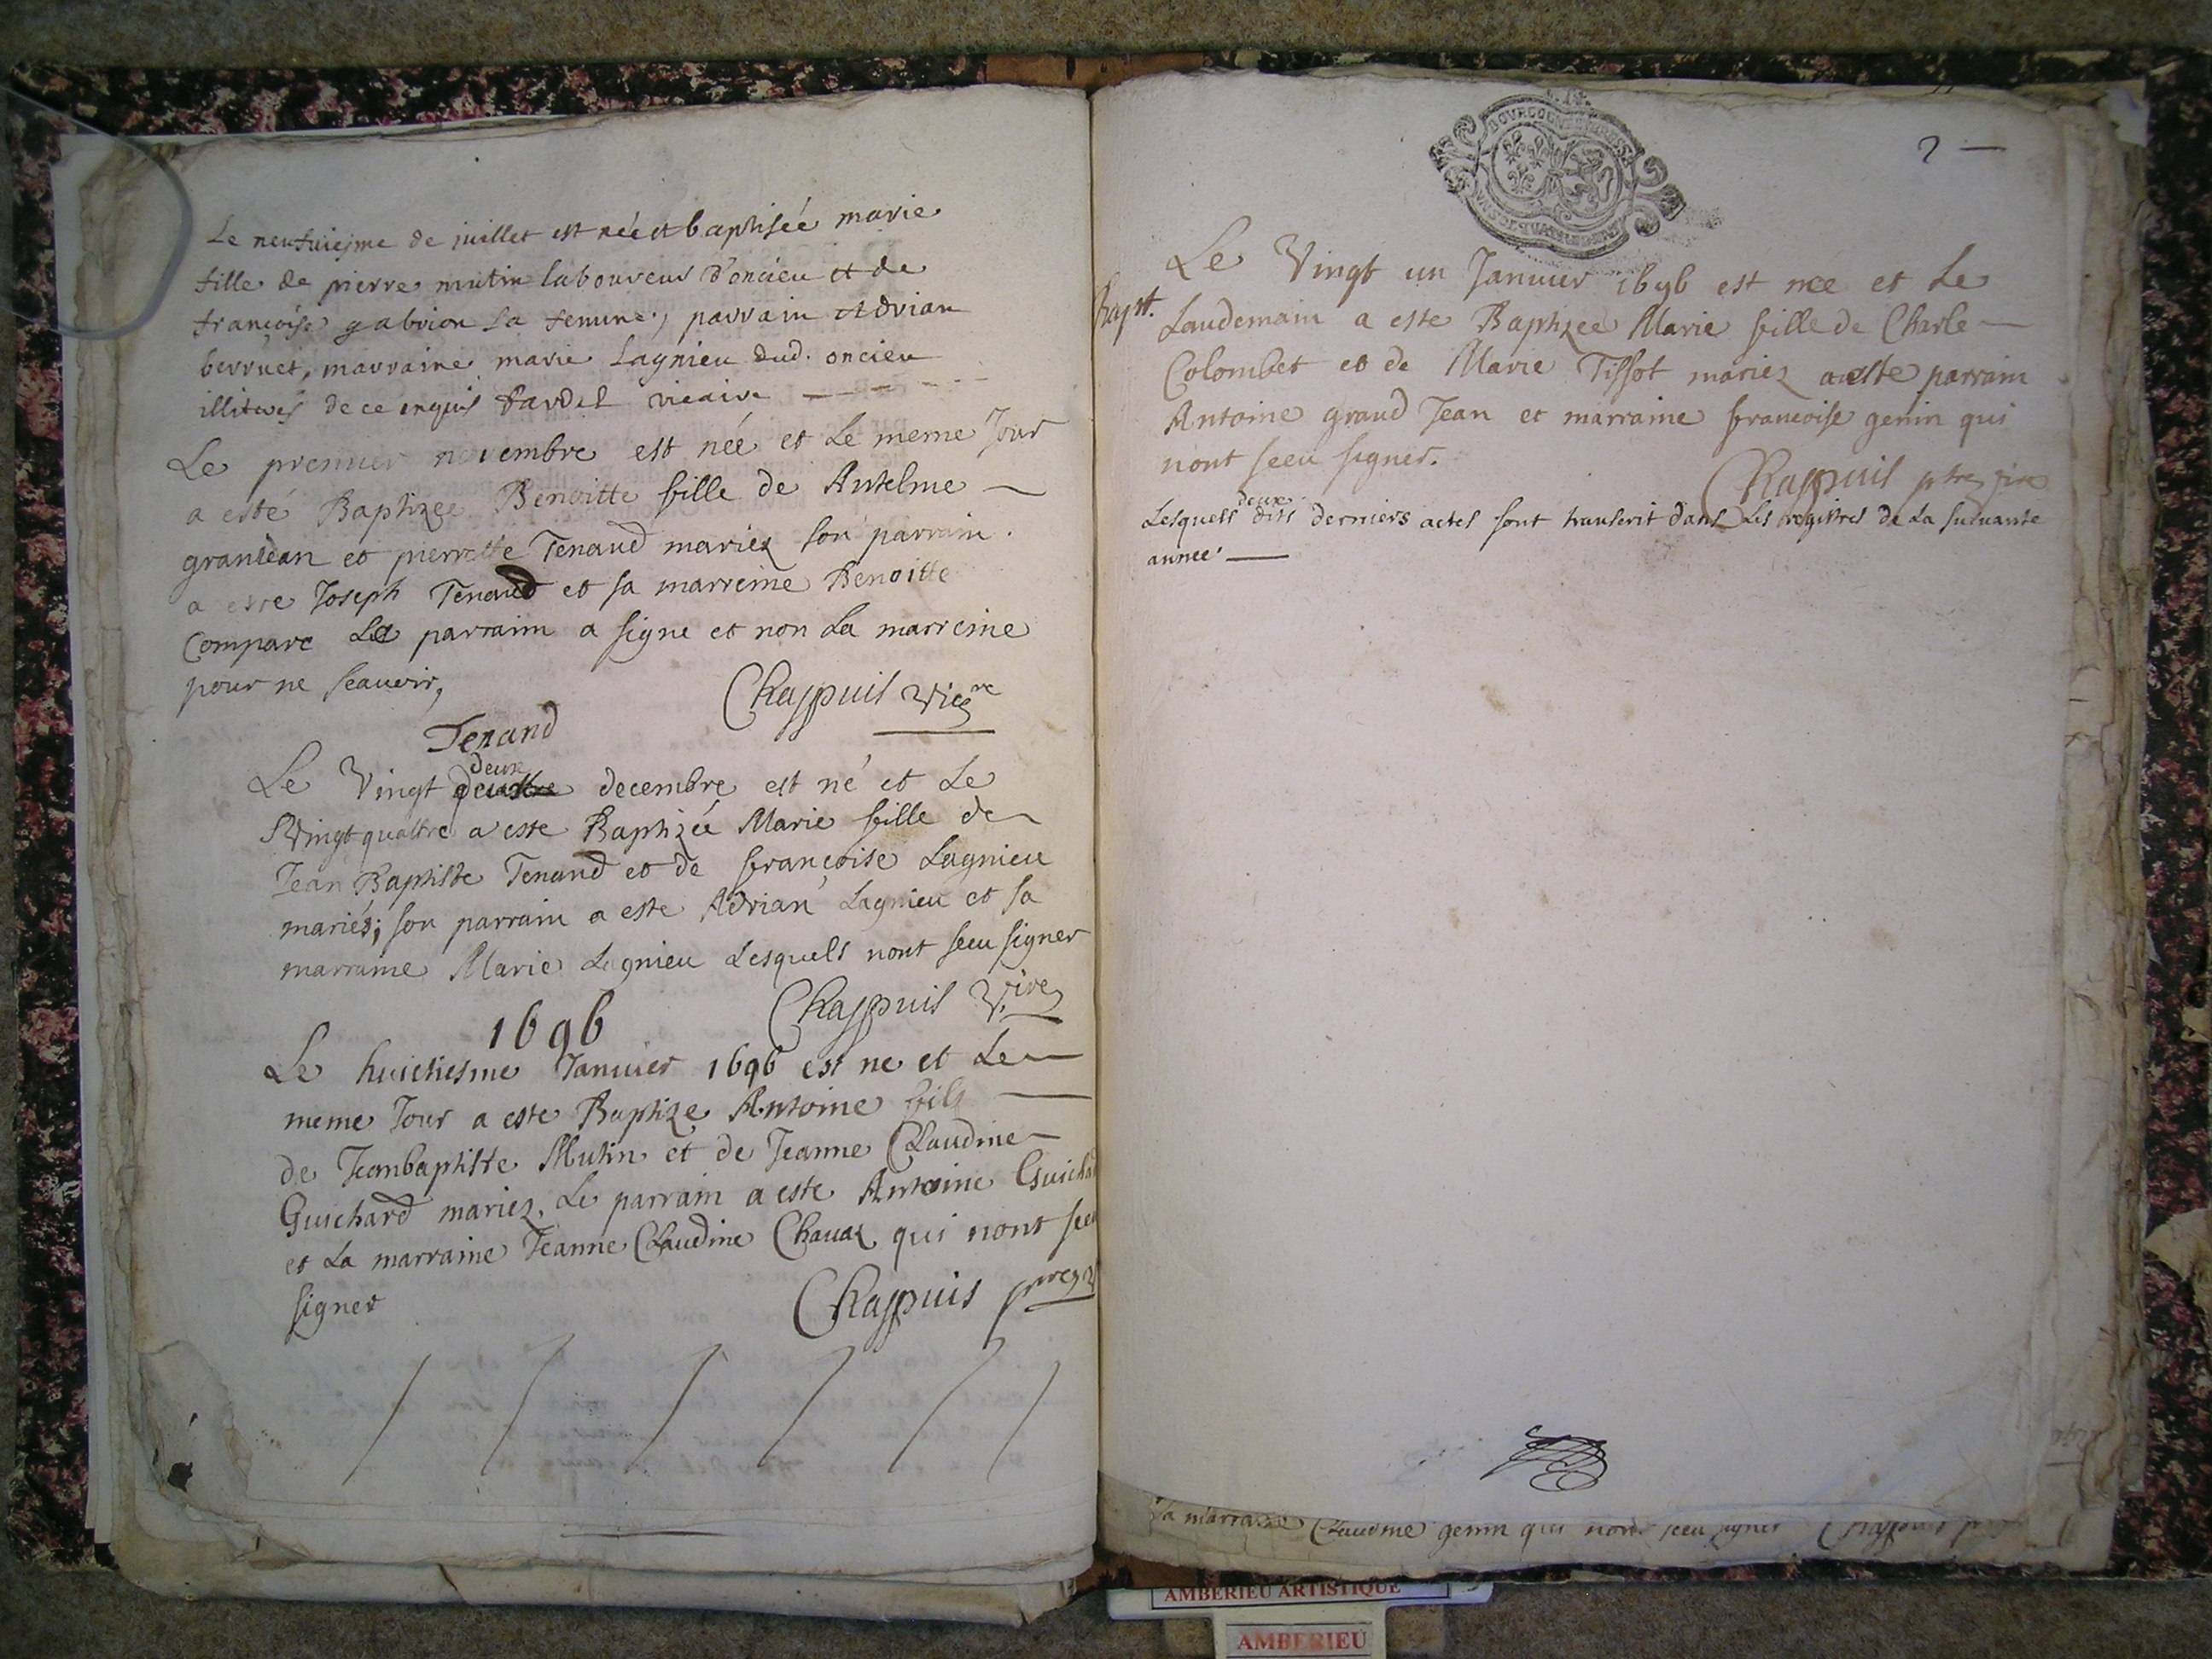 Le neufuiesme de juillet est née et baptisée marie
fille de pierre mutin laboureur d'oncieu et de
françoise gabrion sa femme, parrain Adrian
berruet, marraine marie Lagnieu dud. oncieu
illiterés de ce enquis fardel vicaire
Le premier novembre est née et Le meme Jour
a esté Baptizee Benoitte fille de Antelme
granIean et pierrette Tenand mariez son parrain
a este Joseph Tenand et sa marreine Benoitte
Compare Le parraim a signe et non La marreine
pour ne scauoir,
Chappuis Vicre
Tenand
deux
Le Vingt decembre est né et Le
Vingt quattre a este Baptizée Marie fille de
Jean Baptiste Tenand et de françoise Lagnieu
mariés; son parrain a este Adrian Lagnieu et sa
marraine Marie Lagnieu Lesquels nont sceu signer
Chappuis Vire
1696
Le huictiesme Januier 1696 est ne et Le
meme Jour a este Baptize Antoine fils
de Jeanbaptiste Mutin et de Jeanne Claudine
Guichard mariez, Le parrain a este Antoine Guichar
et La marraine Jeanne Claudine Chauaz qui nont sceu
signer
Chappuis
2
BOURGOGNE
Le Vingt un Januier 1696 est nee et Le
Bapt.
Laudemain a este Baptizee Marie fille de Charle
Colombet et de Marie Tissot mariez a este parrain
Antoine grand Jean et marraine francoise genin qui
nont sceu signer.
Chappuis ptre vire
deux
Lesquels dits derniers actes sont transcrit dans Les registres de La suiuante
annee.
La marraine Claudine genin qui nont sceu signer Chappuis
AMBERIEU ARTISTIQUE
AMBERIEU